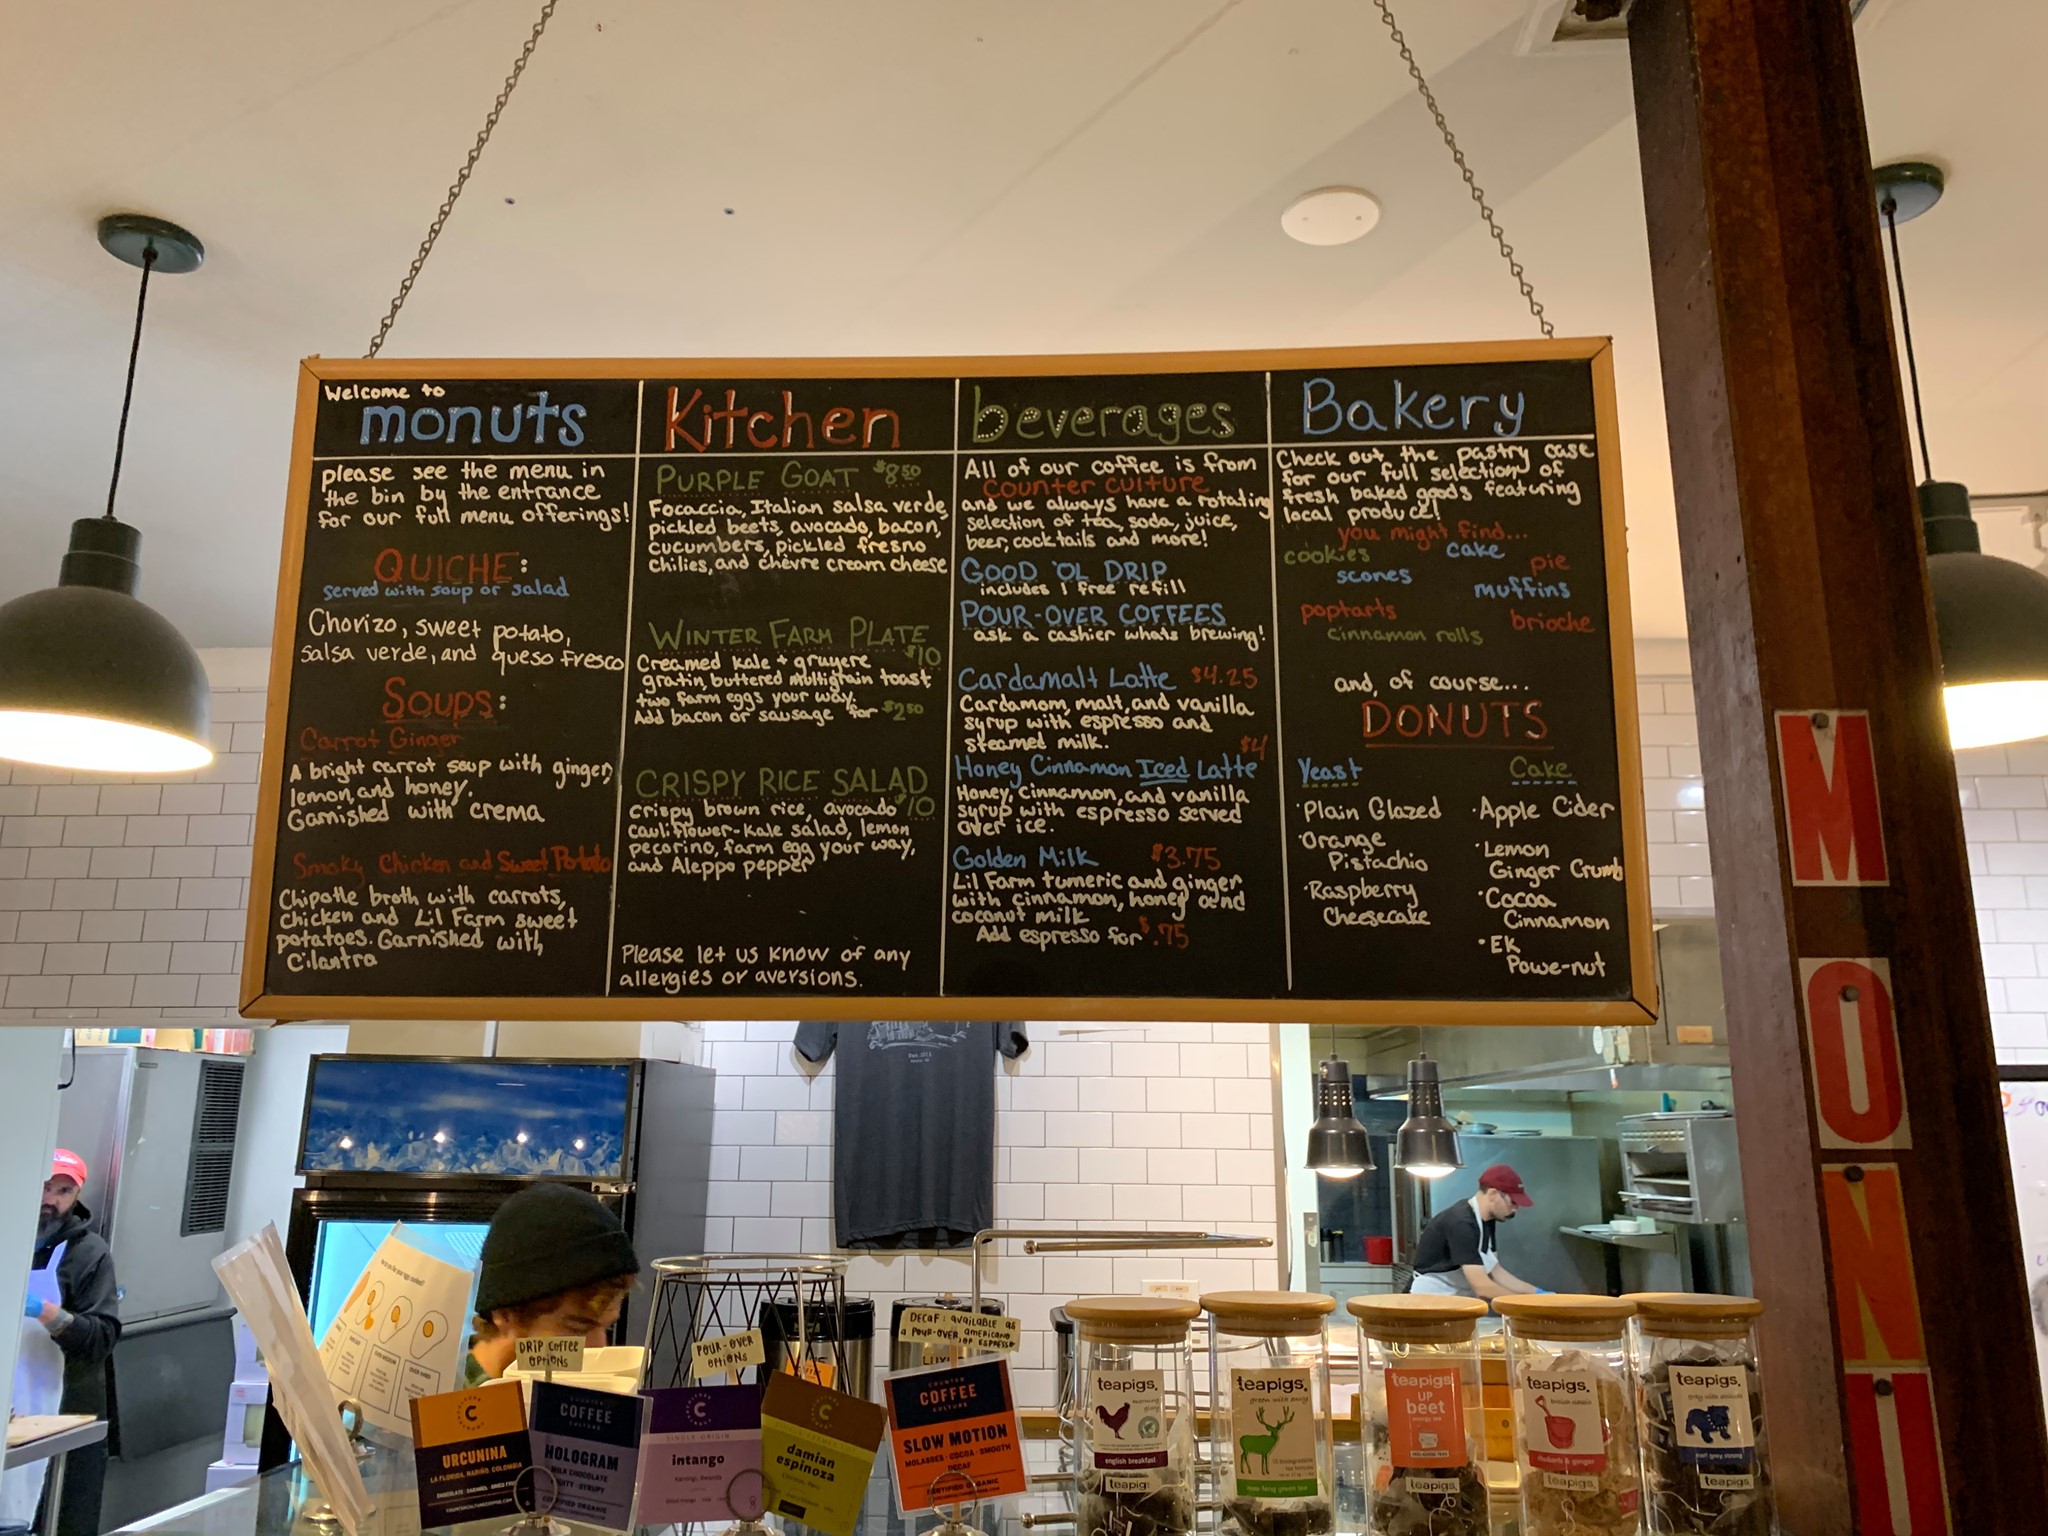 Welcome to
monuts
please see the menu in
the bin by the entrance
for our full menu offerings!
QUICHE:
served with soup or salad
Chorizo, sweet potato,
salsa verde, and queso fresco
Soups:
Carrot Ginger
A bright carrot soup with ginger,
lemon, and honey.
Garnished with crema
Smoky Chicken and Sweet Potato
Chipotle broth with carrots,
chicken and Lil Farm sweet
potatoes. Garnished with
Cilantra
Kitchen
PURPLE GOAT $8.50
Focaccia, Italian salsa verde,
pickled beets, avocado, bacon,
cucumbers, pickled fresno
chilies, and chèvre cream cheese
WINTER FARM PLATE
$10
Creamed kale + gruyere
gratin, buttered multigrain toast,
two farm eggs your way.
Add bacon or sausage for $2.50
CRISPY RICE SALAD
$10
crispy brown rice, avocado
cauliflower-kale salad, lemon
pecorino, farm egg your way,
and Aleppo pepper
Please let us know of any
allergies or aversions.
beverages
All of our coffee is from
counter culture
and we always have a rotating
selection of tea, soda, juice,
beer, cocktails and more!
GOOD 'OL DRIP
includes 1 free refill
POUR-OVER COFFEES
ask a cashier whats brewing!
Cardamalt Latte $4.25
Cardamom, malt, and vanilla
syrup with espresso and
steamed milk.
$4
Honey Cinnamon Iced Latte
Honey, cinnamon, and vanilla
syrup with espresso served
over ice.
Golden Milk $3.75
Lil Farm tumeric and ginger
with cinnamon, honey and
coconut milk
Add espresso for $.75
Bakery
Check out the pastry case
for our full selection of
fresh baked goods featuring
local produce!
you might find...
cookies cake pie
scones muffins
poptarts brioche
cinnamon rolls
and, of course...
DONUTS
Yeast
·Plain Glazed
·Orange
Pistachio
·Raspberry
Cheesecake
Cake
·Apple Cider
·Lemon
Ginger Crumb
·Cocoa
Cinnamon
·EK
Powe-nut
M
O
N
U
DRIP COFFEE
OPTIONS
POUR-OVER
OPTIONS
DECAF: AVAILABLE AS
A POUR-OVER, AMERICANO
OR ESPRESSO
C
URCUNINA
LA FLORIDA, NARIÑO, COLOMBIA
COUNTER
COFFEE
CULTURE
HOLOGRAM
MILK CHOCOLATE
FRUITY · SYRUPY
CERTIFIED ORGANIC
C
SINGLE ORIGIN
intango
C
damian
espinoza
COUNTER
COFFEE
CULTURE
SLOW MOTION
MOLASSES · COCOA · SMOOTH
DECAF
CERTIFIED ORGANIC
teapigs.
english breakfast
teapigs
teapigs.
teapigs
up
beet
teapigs
teapigs.
rhubarb & ginger
teapigs
teapigs.
earl grey strong
teapigs